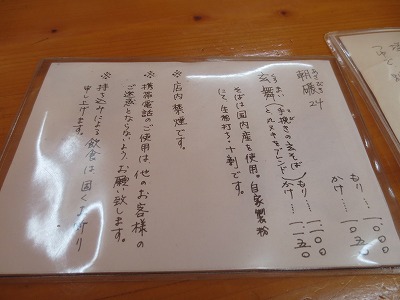 朝磯 24
あさ
もり……一一〇〇
かけ……一一五〇
玄舞
(手挽きの玄そば
と丸ヌキをブレンド)
もり……一一〇〇
かけ……一一五〇
そばは国内産を使用。自家製粉
にて生粉打ち、十割です。
※店内禁煙です。
※携帯電話のご使用は、他のお客様の
ご迷惑とならないようお願い致します。
※持ち込みによる飲食は固くお断り
申し上げます。